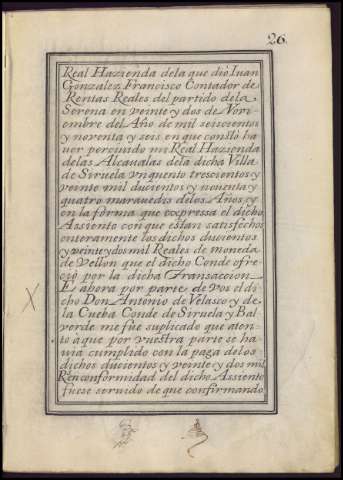 26.
Real Hazienda dela que dió Iuan
Gonzalez Francisco Contador de
Rentas Reales del partido dela
Serena en veinte y dos de Novi-
embre del Año de mil seiscientos
y noventa y seis en que constó ha
uer percivido mi Real Hazienda
delas Alcaualas dela dicha Villa
de Siruela vn quento trescientos y
veinte mil ducientos y nouenta y
quatro marauedis delos Años y
en la forma que expressa el dicho
Assiento con que estan satisfechos
enteramente los dichos duscientos
y veinte y dos mil Reales de moneda
de Vellon que el dicho Conde ofre-
ció por la dicha Transaccion
E ahora por parte de vos el di-
cho Don Antonio de Velasco y de
la Cueba Conde de Siruela y Bal
verde me fúe suplicado que aten-
to á que por vuestra parte se ha
uia cumplido con la paga delos
dichos ducientos y veinte y dos mil
R.s en conformidad del dicho Assiento
fuese seruido de que confirmando